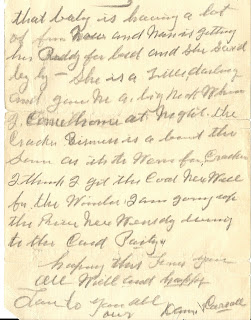 that baby is having a lot
of fun Now and Nan is getting
her Ready for bed and She Said
by by - She is a little darling
and gave me a big
I Come Home at Night. the
Cracker Business is about the
Same as its to Warm for Crackers
I think I got the Coal New Well
for the Winter I am going up
the River New Wensday evening
to the Card Party
hoping this finds you
All Well and happy
Love to you all